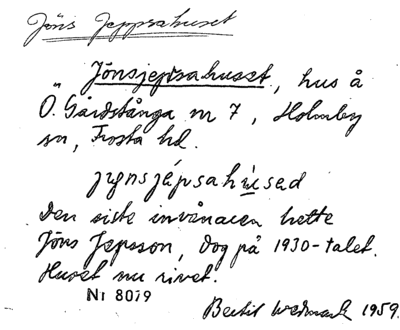 Jöns Jeppsahuset
Jönsjeppsahuset, hus å
Ö. Gårdstånga nr 7, Holmby
sn, Frosta hd.
jynsjépsahùsed
Den siste invånaren hette
Jöns Jepsson, dog på 1930-talet.
Huset nu rivet.
Nr 8079
Bertil Wedmark 1959.